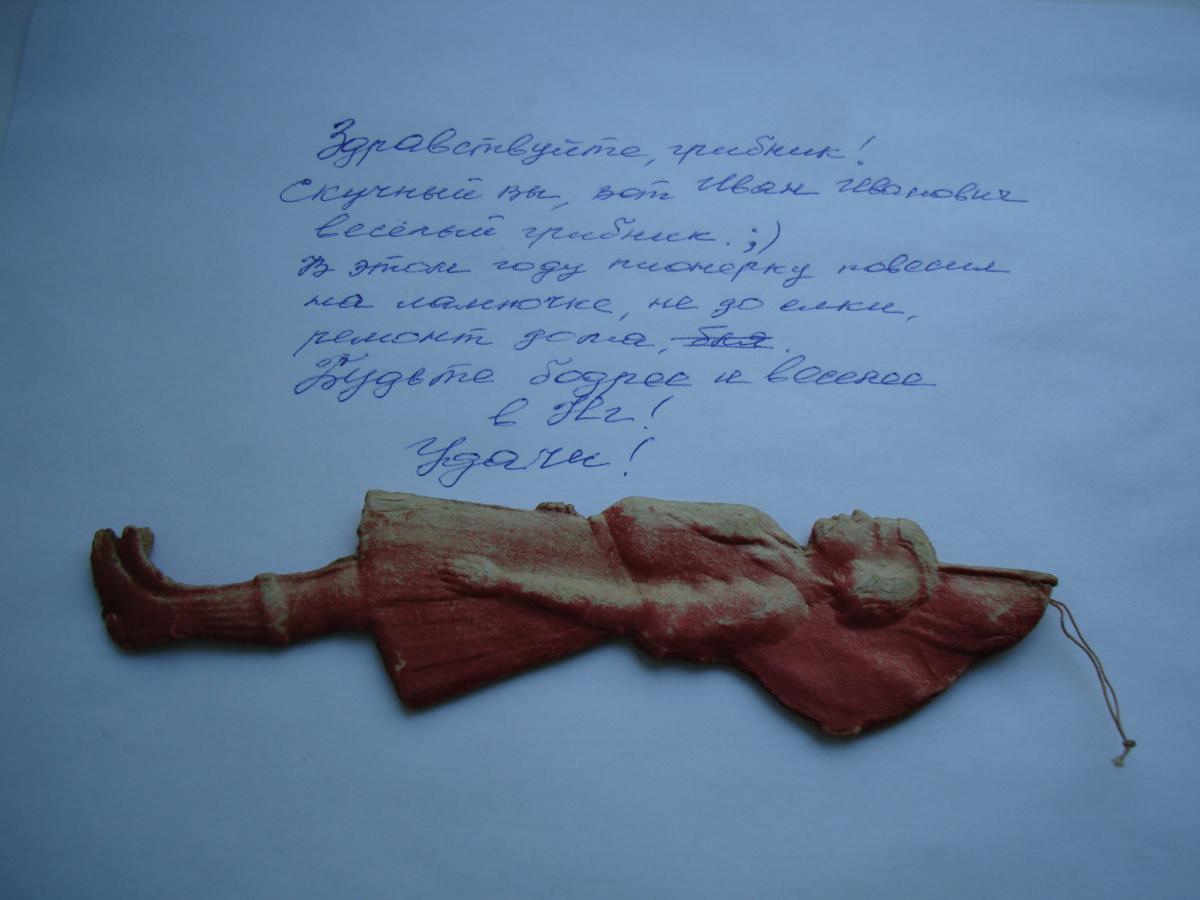 Здравствуйте, грибник!
Скучный вы, вот Иван Иванович
весёлый грибник. ;)
В этом году пионерку повесил
на лампочке, не до елки,
ремонт дома, бля.
Будьте бодрее и веселее
в Нг!
Удачи!